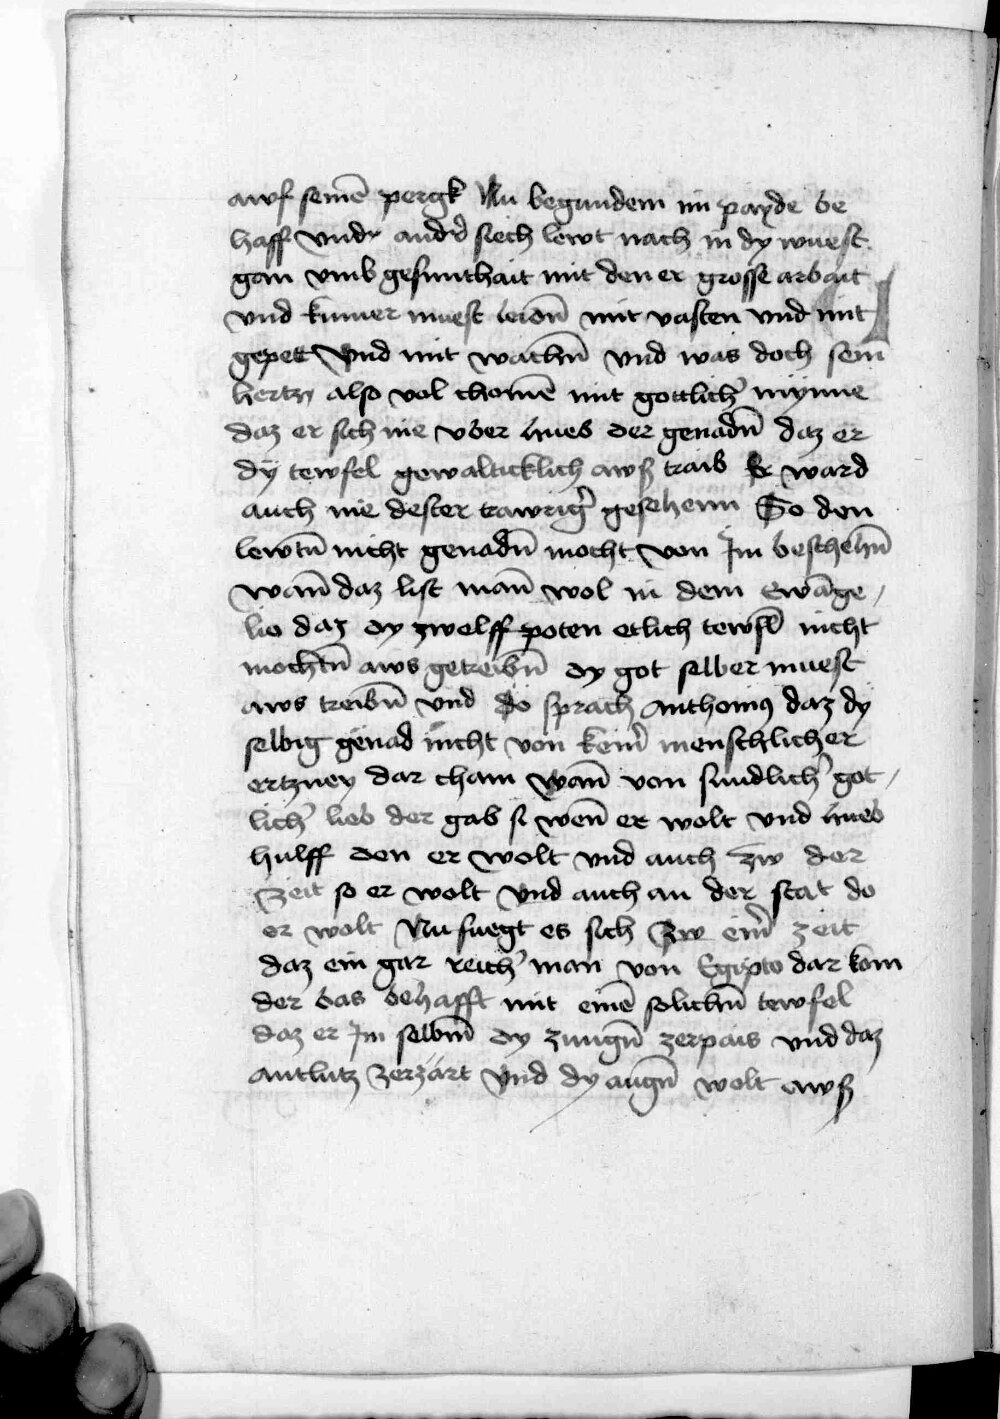 awf seinē pergk Nu begundem im payde be
hafft vnd andˀ siech lewt nach in dy wuest
gan vmb gesunthait mit den er grosse arbait
vnd kumer muest leidn̄ mit vasten vnd mit
gepett Vnd mit wachn̄ vnd was doch sein
hertz also vol chomē mit gottlichˀ mynne
daz er sich nie vber hueb der genadn̄ daz er
dÿ tewfel gewalticklich awß traib Er ward
auch nie dester trawrigˀ gesehenn So den
lewtn̄ nicht genadn̄ mocht von Im beschehn̄
wan̄ daz list man̄ wol in dem Ewāge /
lio daz dy zwelff poten etlich tewfl̄ nicht
mochtn̄ aws getreibn̄ dy got selber muest
aws treibn̄ vnd do sprach Anthonius daz dÿ
selbig genad nicht von keinˀ menschlicher
ertzney dar cham wan̄ von sundlichˀ got /
lichˀ lieb der gab si wen̄ er wolt vnd hueb
hulff den er wolt vnd auch zw der
zeit so er wolt vnd auch an der stat do
er wolt Nu fuegt es sich zw einˀ zeit
daz ein gar reichˀ man von Egipto dar kom
der bas behafft mit einē solichn̄ tewfel
daz er Im selbm̄ dy zungn̄ zerpais vnd daz
antlutz zerzart Vnd dy augn̄ wolt awß